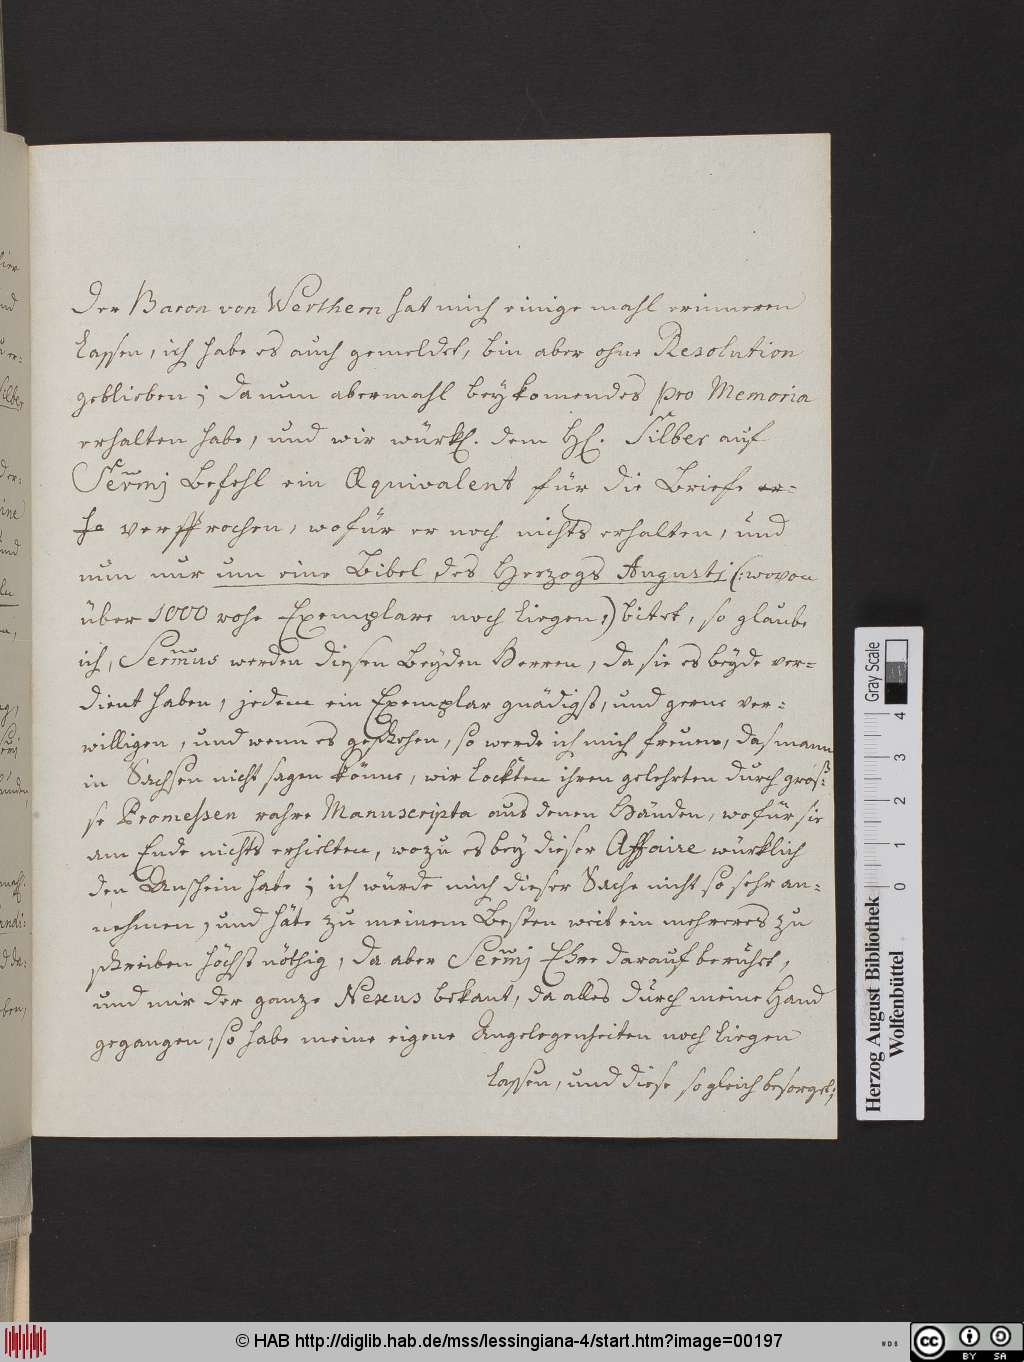 Der Baron von Werthern hat mich einige mahl erinneren
lassen, ich habe es auch gemeldet, bin aber ohne Resolution
geblieben; da nun abermahl beykomendes pro Memoria
erhalten habe, und wir würkl. dem H. Silber auf
Sermi Befehl ein Æquivalent für die Briefe er-
he versprochen, wofür er noch nichts erhalten, und
nun nur um eine Bibel des Herzogs Augusti (: wovon
über 1000 rohe Exemplare noch liegen :) bittet, so glaube
ich, Sermus werden diesen beyden Herren, da sie es beyde ver-
dient haben, jedem ein Exemplar gnädigst, und gerne ver-
willigen, und wenn es geschehen, so werde ich mich freuen, das mann
in Sachsen nicht sagen könne, wir lockten ihren gelehrten durch gros-
se Promessen rahre Manuscripta aus denen Händen, wofür sie
am Ende nichts erhielten, wozu es bey dieser Affaire würklich
den Anschein habe; ich würde mich dieser Sache nicht so sehr an-
nehmen, und häte zu meinem Besten weit ein mehreres zu
schreiben höchst nöthig, da aber Sermi Ehre darauf beruhet,
und mir der ganze Nexus bekant, da alles durch meine Hand
gegangen, so habe meine eigene Angelegenheiten noch liegen
lassen, und diese so gleich besorget;
Gray Scale
0 1 2 3 4
Herzog August Bibliothek
Wolfenbüttel
© HAB http://diglib.hab.de/mss/lessingiana-4/start.htm?image=00197
WDB
cc BY SA